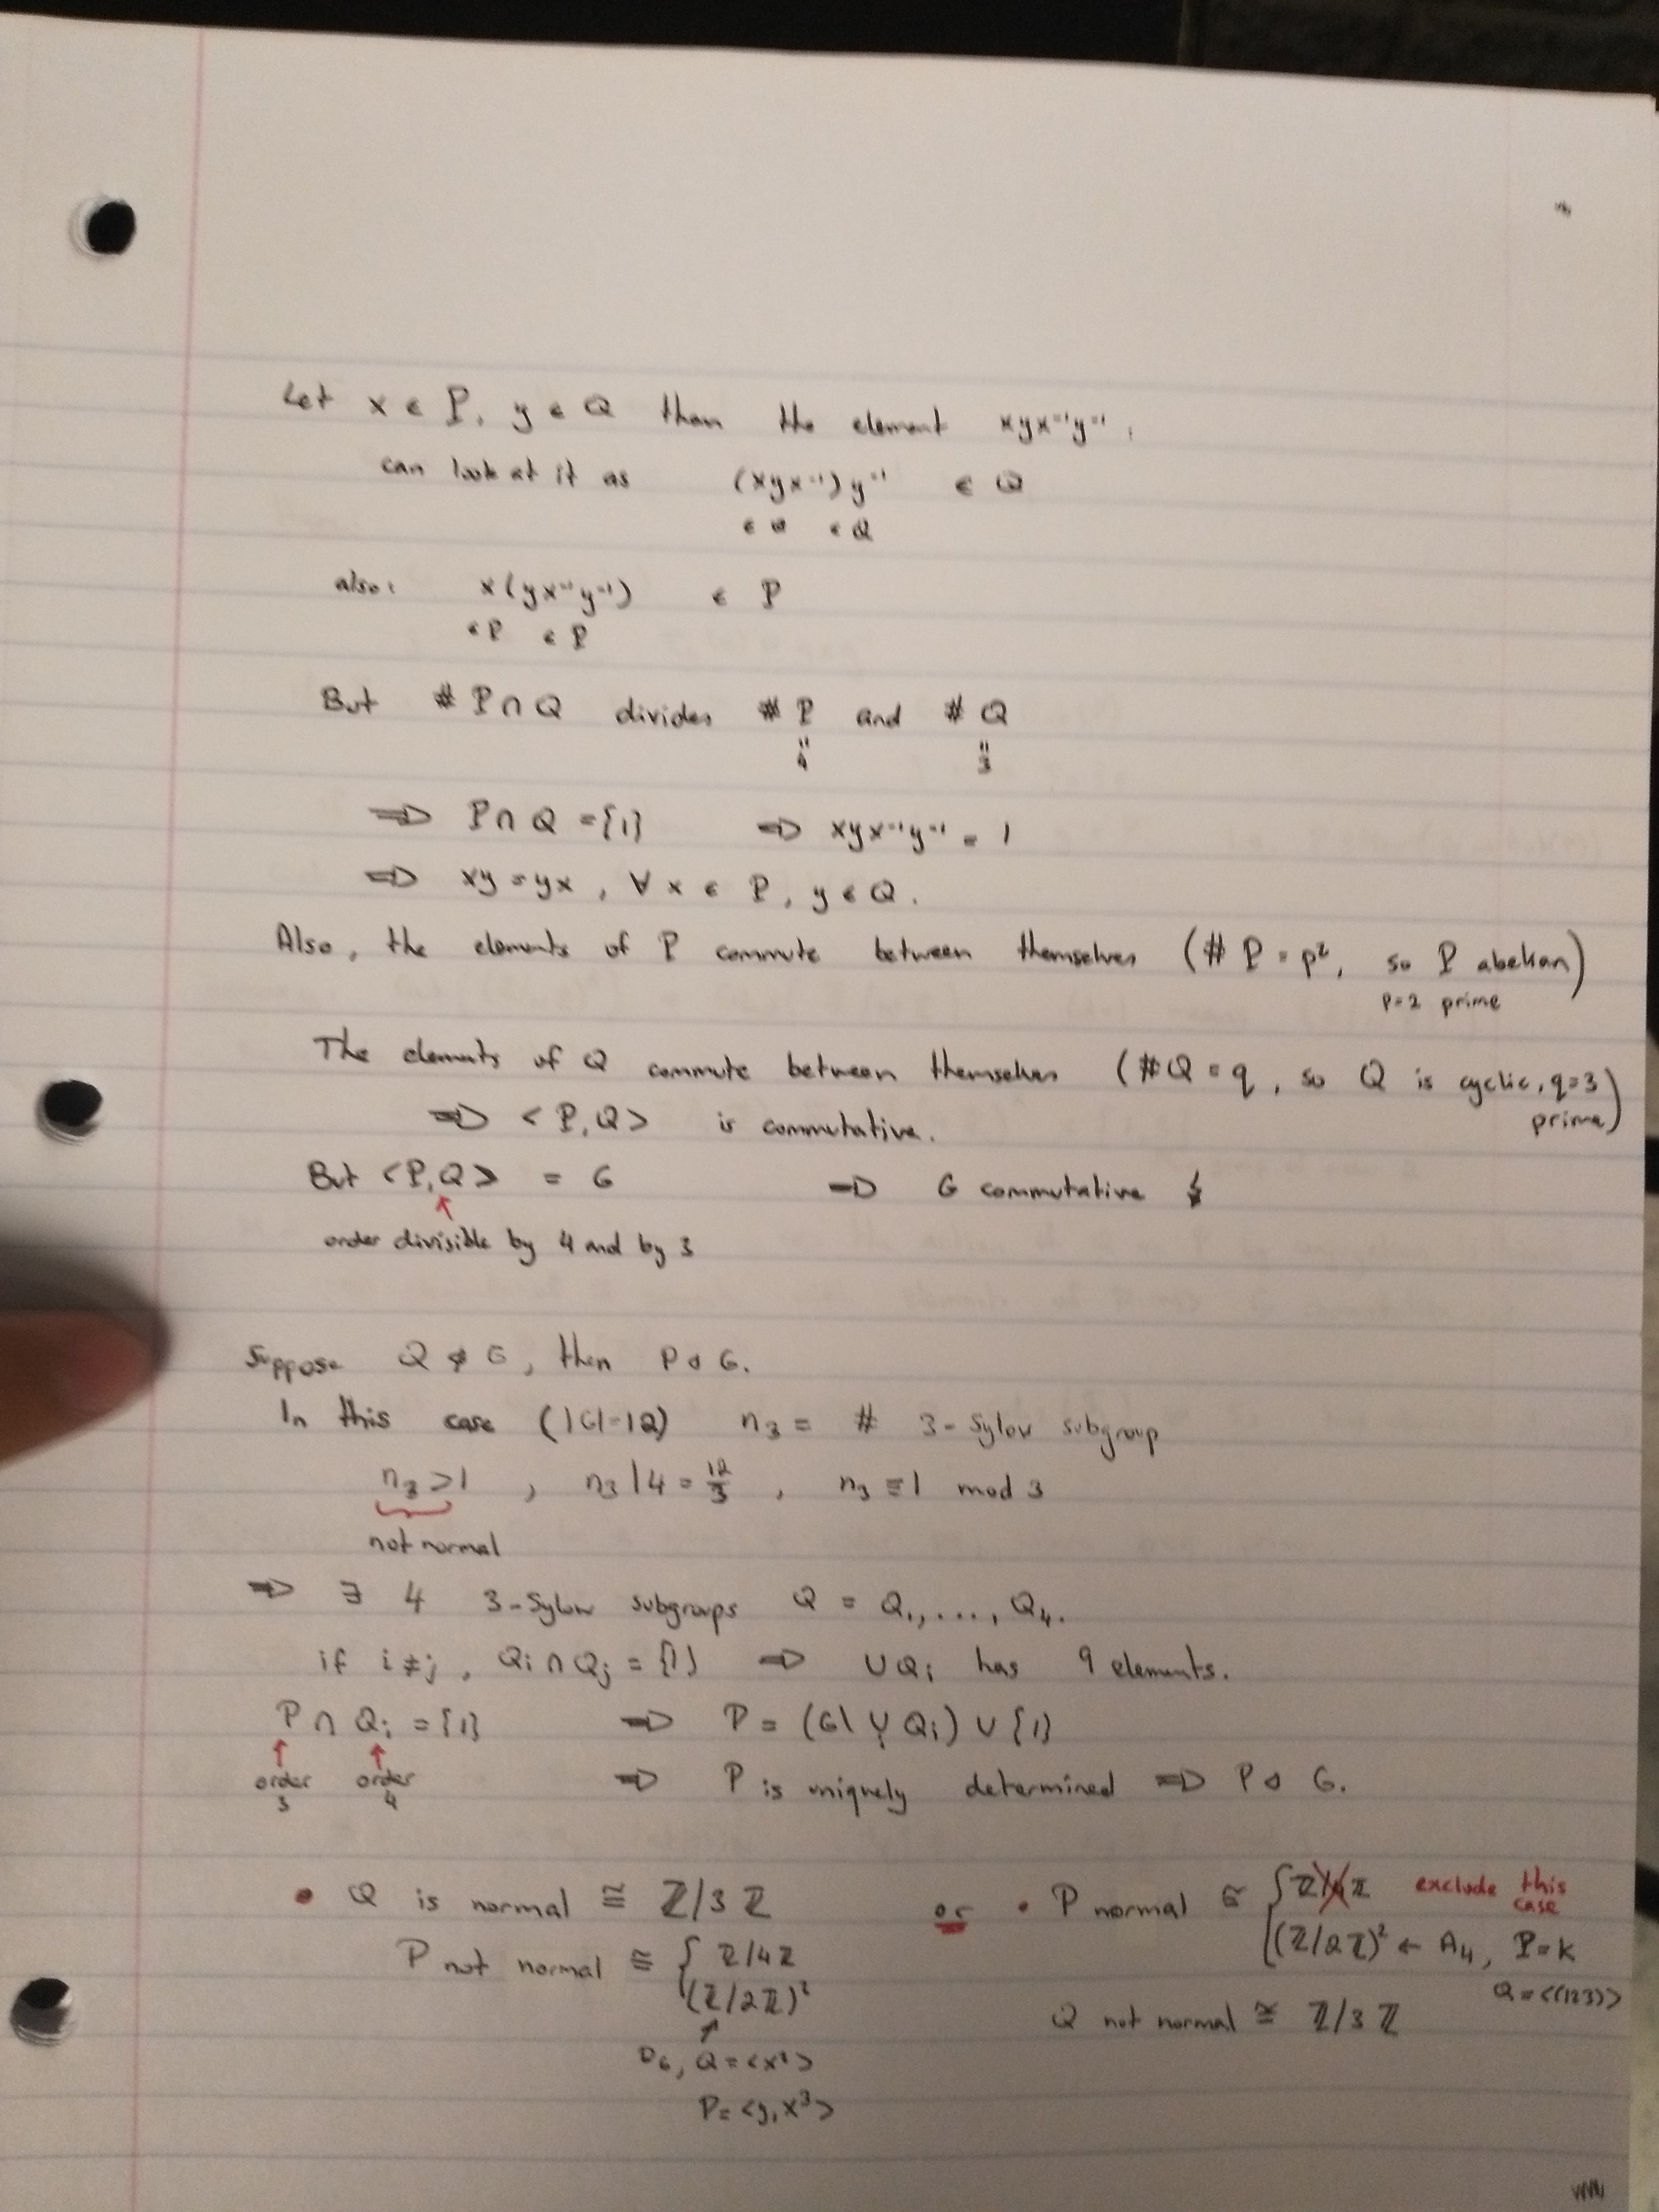 Let x ∈ P, y ∈ Q then the element xyx⁻¹y⁻¹ :
can look at it as (xyx⁻¹)y⁻¹ ∈ Q
∈ Q ∈ Q
also: x(yx⁻¹y⁻¹) ∈ P
∈ P ∈ P
But # P ∩ Q divides # P and # Q
" "
4 3
⇒ P ∩ Q = {1} ⇒ xyx⁻¹y⁻¹ = 1
⇒ xy = yx , ∀ x ∈ P, y ∈ Q.
Also, the elements of P commute between themselves (# P = p², so P abelian)
p=2 prime
The elements of Q commute between themselves (#Q = q, so Q is cyclic, q=3
prime)
⇒ <P,Q> is commutative.
But <P,Q> = G ⇒ G commutative ↯
↑
order divisible by 4 and by 3
Suppose Q ⋪ G, then P ◁ G.
In this case (|G|=12) n₃ = # 3-Sylow subgroup
n₃ > 1 , n₃ | 4 = 12/3 , n₃ ≡ 1 mod 3
not normal
⇒ ∃ 4 3-Sylow subgroups Q = Q₁, ..., Q₄.
if i ≠ j, Qᵢ ∩ Qⱼ = {1} ⇒ ∪Qᵢ has 9 elements.
P ∩ Qᵢ = {1} ⇒ P = (G \ ∪ Qᵢ) ∪ {1}
↑ ↑
order order ⇒ P is uniquely determined ⇒ P ◁ G.
3 4
• Q is normal ≅ ℤ/3ℤ or • P normal ≅ { ℤ/4ℤ exclude this
case
P not normal ≅ { ℤ/4ℤ (ℤ/2ℤ)² ← A₄, P = K
(ℤ/2ℤ)² Q = <(123)>
↑ Q not normal ≅ ℤ/3ℤ
D₆, Q = <x²>
P = <y, x³>